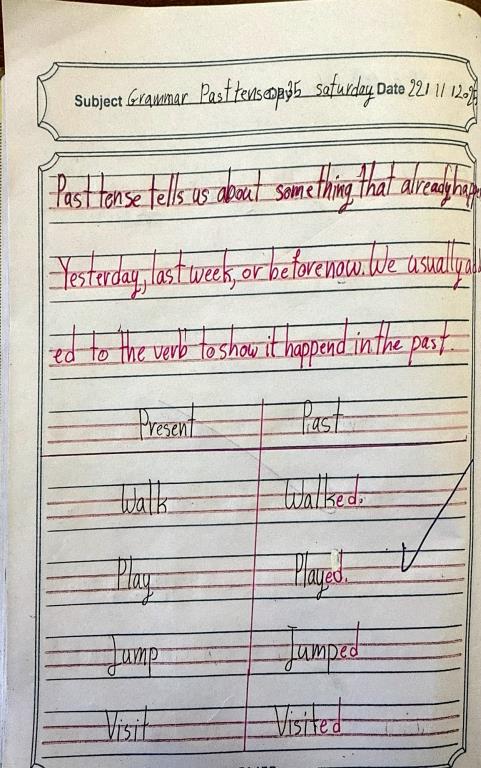 Subject Grammar Past tense pg35 saturday Date 22/11/2025
Past tense tells us about something that already happe
Yesterday, last week, or before now. We usually ad
ed to the verb to show it happend in the past.
Present Past
Walk Walked.
Play Played.
Jump Jumped
Visit Visited